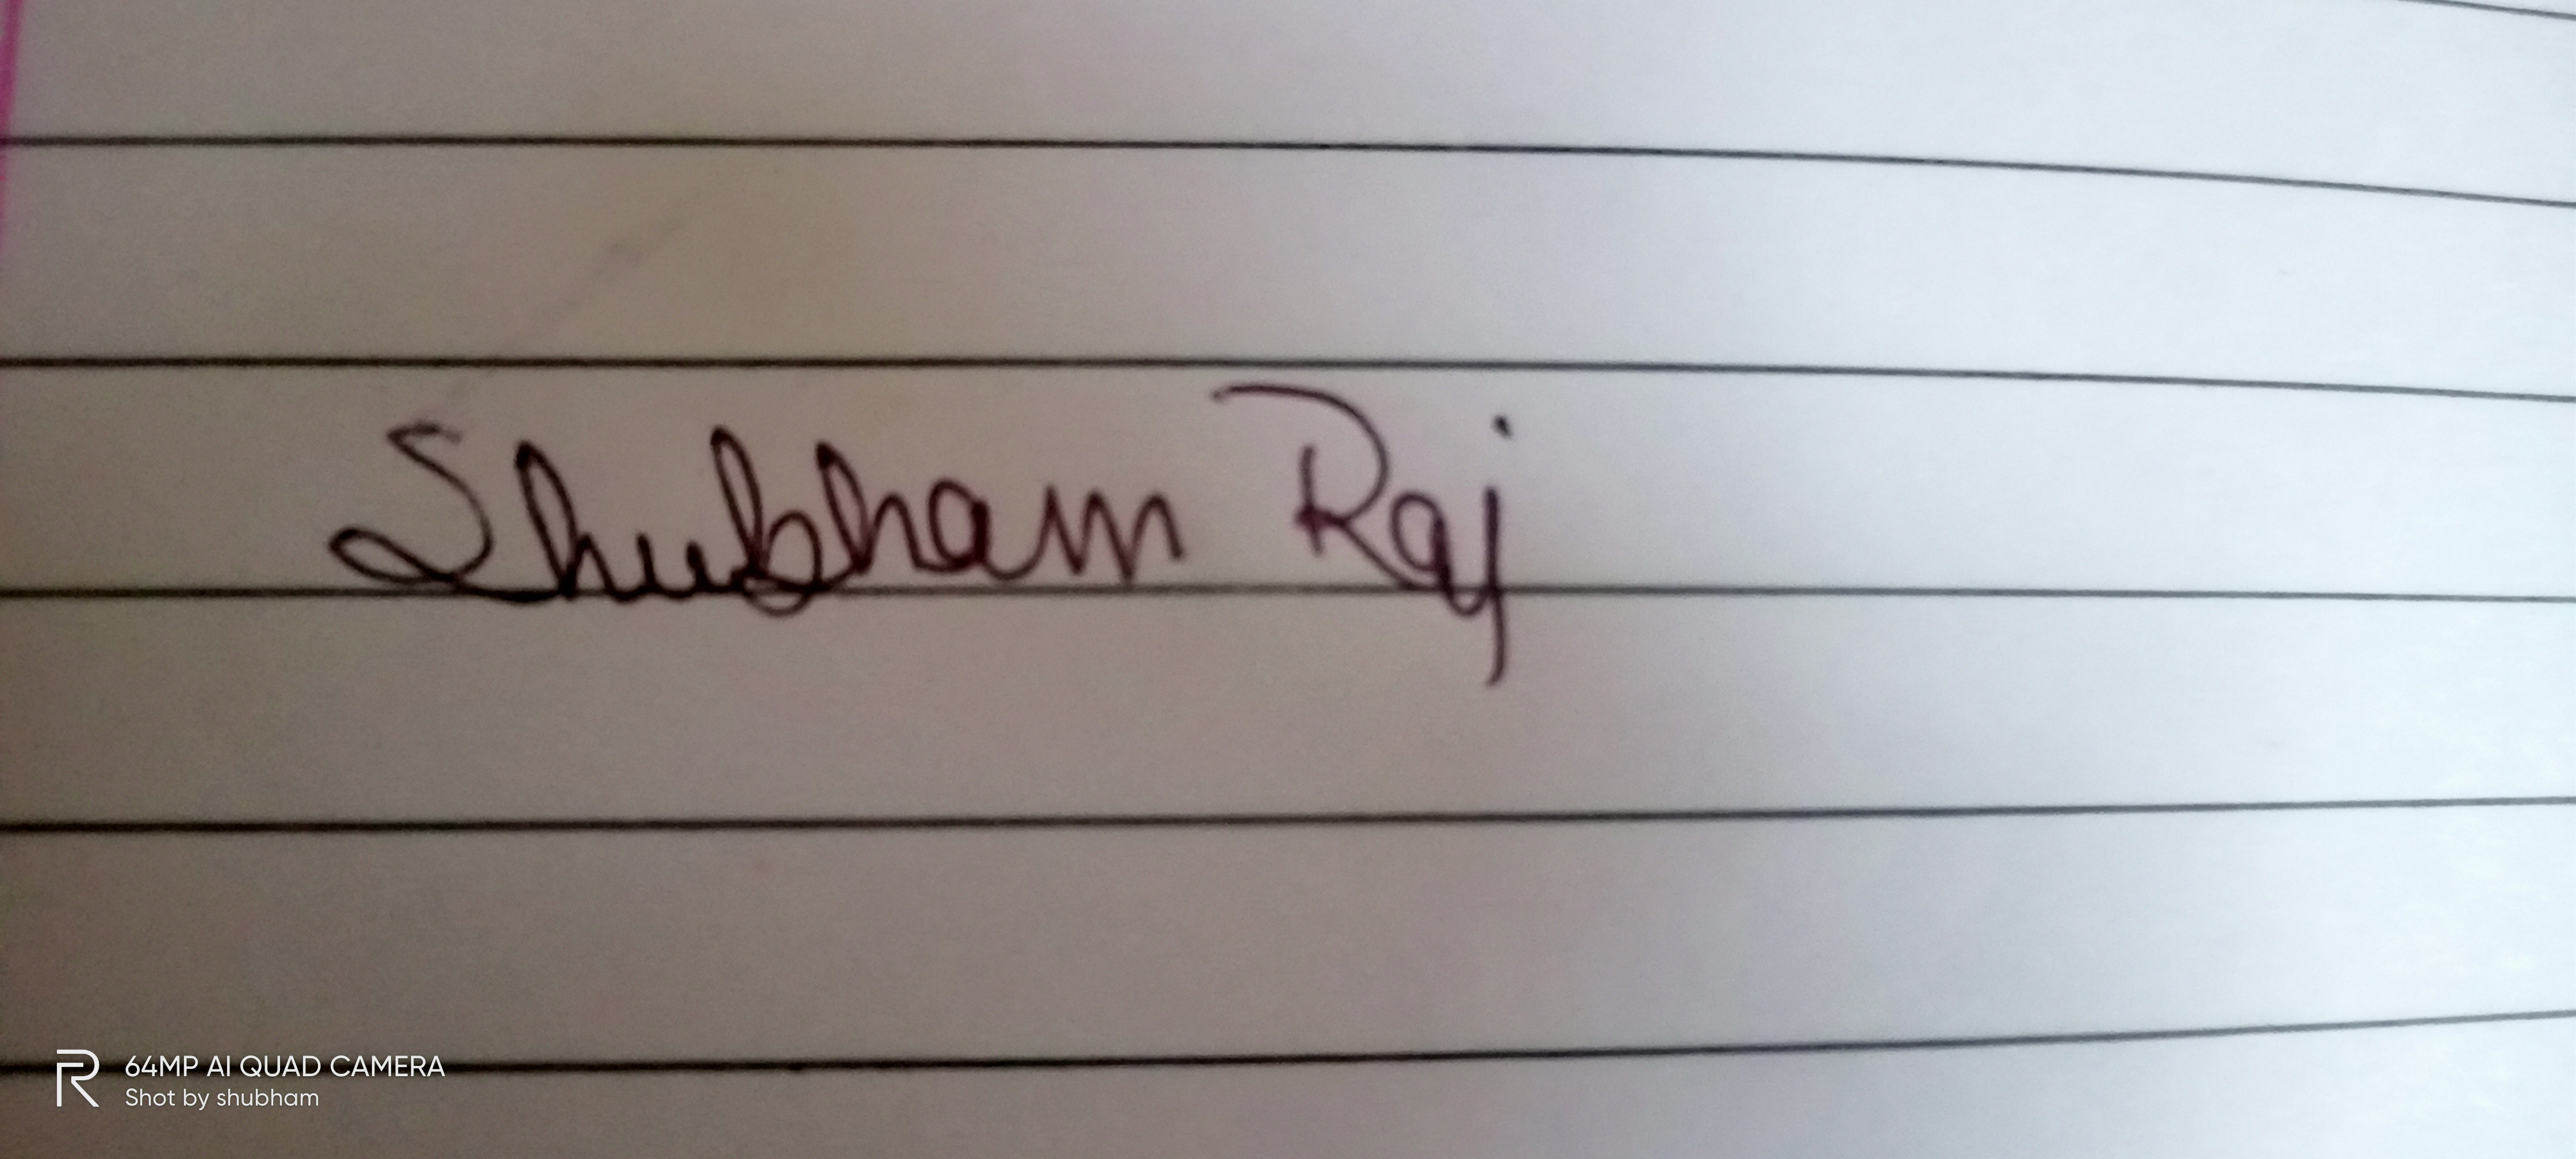 Shubham Raj
64MP AI QUAD CAMERA
Shot by shubham